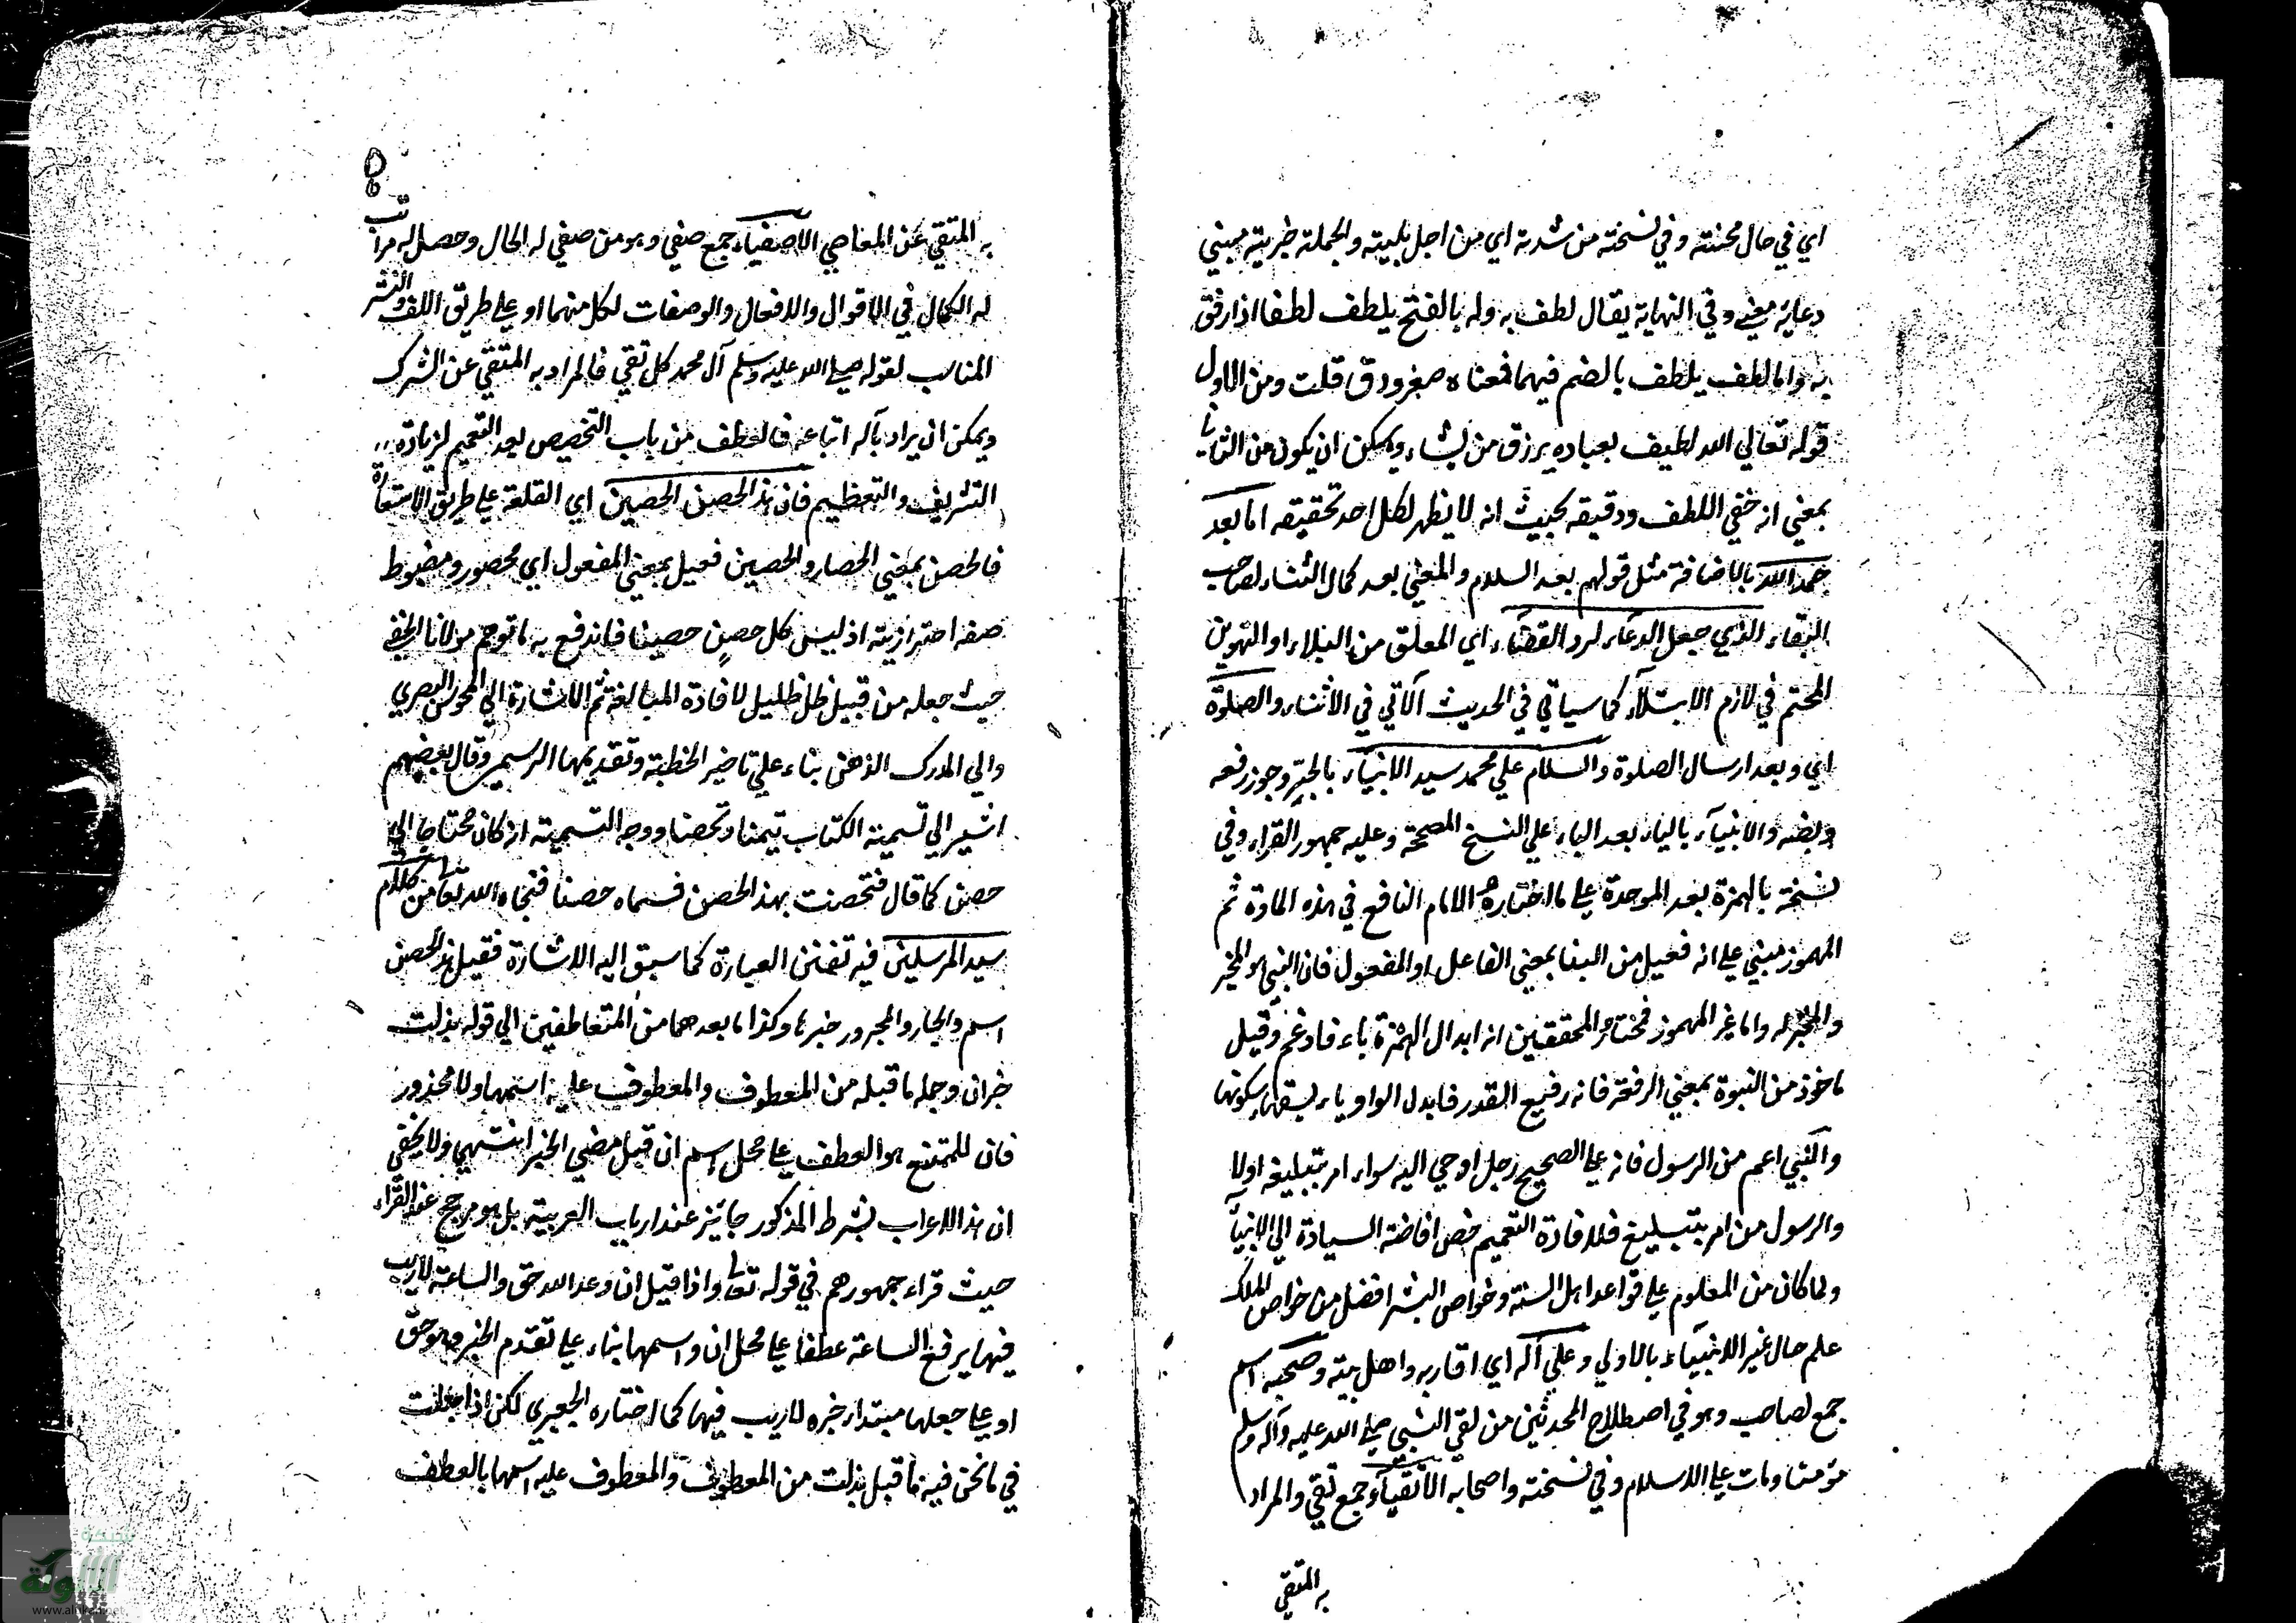 اي في حال محنته وفي نسخته من شدته اي من اجل بليته والجملة خبرية مبني
دعاية معني وفي النهاية يقال لطف به وله بالفتح يلطف لطفا اذا رفق
به واما لطف يلطف بالضم فيهما فمعناه صغر ودق قلت ومن الاول
قوله تعالي الله لطيف بعباده يرزق من يشاء ويمكن ان يكون من الثاني
بمعني انه خفي اللطف ودقيقه بحيث انه لا يظهر لكل احد تحقيقه اما بعد
حمد الله بالاضافة مثل قولهم بعد السلام والمعني بعد كمال الثناء لصاحب
البقاء الذي جعل الدعاء لرد القضاء اي المعلق من البلاء او التهوين
المحتم في لازم الابتلاء كما سياتي في الحديث الآتي في الاثناء والصلوة
اي وبعد ارسال الصلوة والسلام علي محمد سيد الانبياء بالجر وجوز رفعه
ونصبه والانبياء بالياء بعد الباء علي النسخ المصححة وعليه جمهور القراء وفي
نسخة بالهمزة بعد الموحدة علي ما اختاره الامام النافع في هذه المادة ثم
المهموز مبني علي انه فعيل من النبا بمعني الفاعل او المفعول فان النبي هو المخبر
والمخبر له واما غير المهموز فمختار المحققين انه ابدال الهمزة ياء فادغم وقيل
ماخوذ من النبوة بمعني الرفعة فانه رفيع القدر فابدل الواو ياء لسبقها بسكونها
والنبي اعم من الرسول فانه علي الصحيح رجل اوحي اليه سواء امر بتبليغه اولا
والرسول من امر بتبليغ فلافادة التعميم خص اضافة السيادة الي الانبياء
ولما كان من المعلوم علي قواعد اهل السنة وخواص البشر افضل من خواص الملك
علم حال غير الانبياء بالاولي وعلي آله اي اقاربه واهل بيته وصحبه اسم
جمع لصاحب وهو في اصطلاح المحدثين من لقي النبي صلي الله عليه وآله وسلم
مؤمنا ومات علي الاسلام وفي نسخته واصحابه الاتقياء جمع تقي والمراد
به المتقي
به المتقي عن المعاصي الاصفياء جمع صفي وهو من صفي له الحال وحصل له مراتب
له الكمال في الاقوال والافعال والوصفات لكل منهما او علي طريق اللف والنشر
المناسب لقوله صلي الله عليه وسلم آل محمد كل تقي فالمراد به المتقي عن الشرك
ويمكن ان يراد بآله اتباعه فالعطف من باب التخصيص بعد التعميم لزيادة
التشريف والتعظيم فان هذا الحصن الحصين اي القلعة علي طريق الاستعارة
فالحصن بمعني الحصار والحصين فعيل بمعني المفعول اي محصور ومضبوط
صفة احترازية اذ ليس كل حصن حصينا فاندفع به ما توهم مولانا الحنفي
حيث جعله من قبيل ظل ظليل لافادة المبالغة ثم الاشارة الي المحوس البصري
والي المدرك الذهني بناء علي تاخير الخطبة وتقديمها الرسمي وقال بعضهم
اشير الي تسمية الكتاب تيمنا وتحصنا ووجه التسمية انه كان محتاجا الي
حصن كما قال فتحصنت بهذا الحصن فسماه حصنا فنجاه الله تعالي من كلام
سيد المرسلين فيه تفنن العبارة كما سبق اليه الاشارة فقيل هذا الحصن
اسم والجار والمجرور خبرها وكذا ما بعدهما من المتعاطفين الي قوله بذلت
خبران وجمله ما قبله من المعطوف والمعطوف عليه اسمها ولا محذور
فان للممتنع هو العطف علي محل اسم ان قبل مضي الخبر انتهي ولا يخفي
ان هذا الاعراب بشرط المذكور جائز عند ارباب العربية بل هو مرجح عند القراء
حيث قراء جمهورهم في قوله تعالي واذا قيل ان وعد الله حق والساعة لا ريب
فيها برفع الساعة عطفا علي محل ان واسمها بناء علي تقدم الخبر وهو حق
او علي جعلها مبتداء خبره لا ريب فيها كما اختاره الجعبري لكن اذا جعلت
في ما نحن فيه ما قبل بذلت من المعطوف والمعطوف عليه اسمها بالعطف